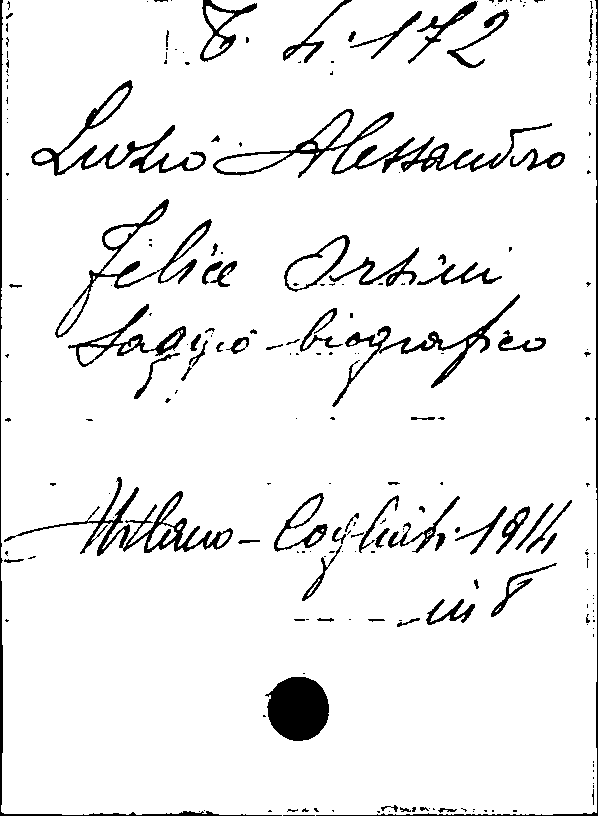 6. 4. 172
Luzio Alessandro
Felice Orsini
Saggio biografico
Milano - Cogliati. 1914
in 8